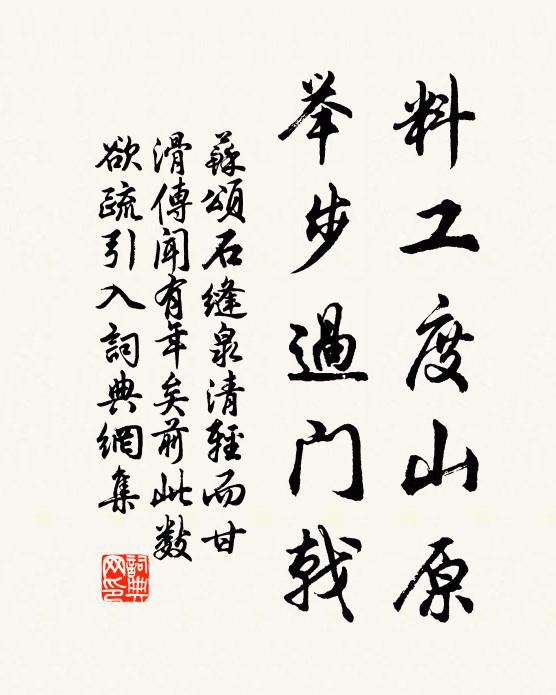 料工度山原
举步過门戟
蘇頌石縫泉清輕而甘
滑傳聞有年矣前此数
欲疏引入詞典網集
詞典网印